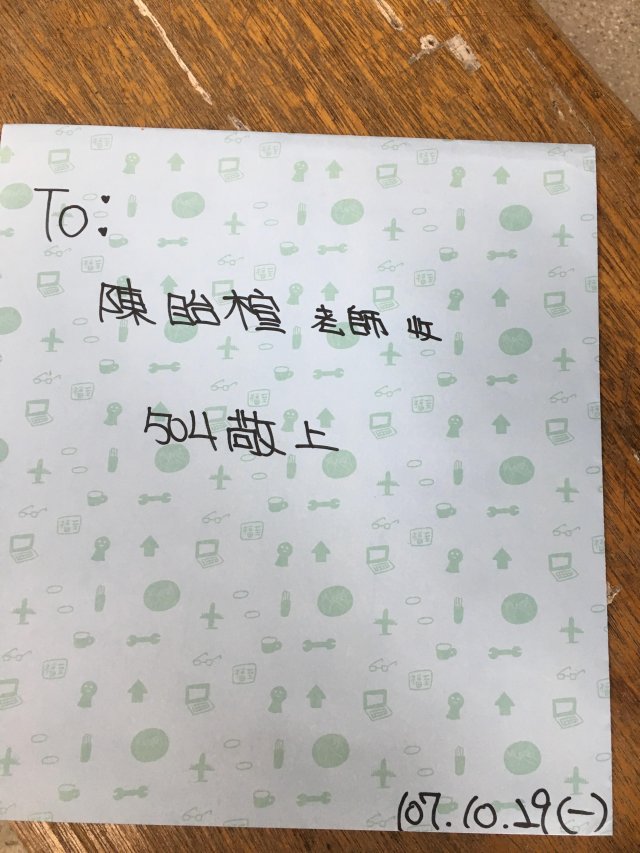 To:
陳貽楦 老師 收
504敬上
107.10.29(一)